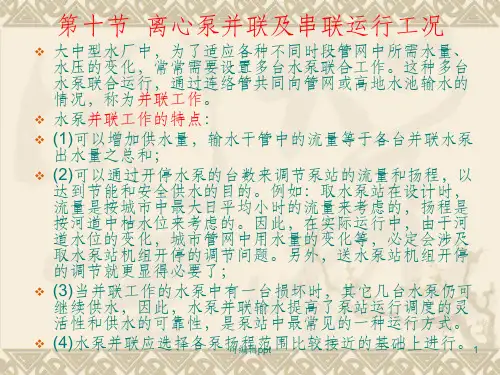 第十节 离心泵并联及串联运行工况
大中型水厂中，为了适应各种不同时段管网中所需水量、
水压的变化，常常需要设置多台水泵联合工作。这种多台
水泵联合运行，通过连络管共同向管网或高地水池输水的
情况，称为并联工作。
水泵并联工作的特点：
(1)可以增加供水量，输水干管中的流量等于各台并联水泵
出水量之总和；
(2)可以通过开停水泵的台数来调节泵站的流量和扬程，以
达到节能和安全供水的目的。例如：取水泵站在设计时，
流量是按城市中最大日平均小时的流量来考虑的，扬程是
按河道中枯水位来考虑的。因此，在实际运行中，由于河
道水位的变化，城市管网中用水量的变化等，必定会涉及
取水泵站机组开停的调节问题。另外，送水泵站机组开停
的调节就更显得必要了；
(3)当并联工作的水泵中有一台损坏时，其它几台水泵仍可
继续供水，因此，水泵并联输水提高了泵站运行调度的灵
活性和供水的可靠性，是泵站中最常见的一种运行方式。
(4)水泵并联应选择各泵扬程范围比较接近的基础上进行。
可编辑ppt
1